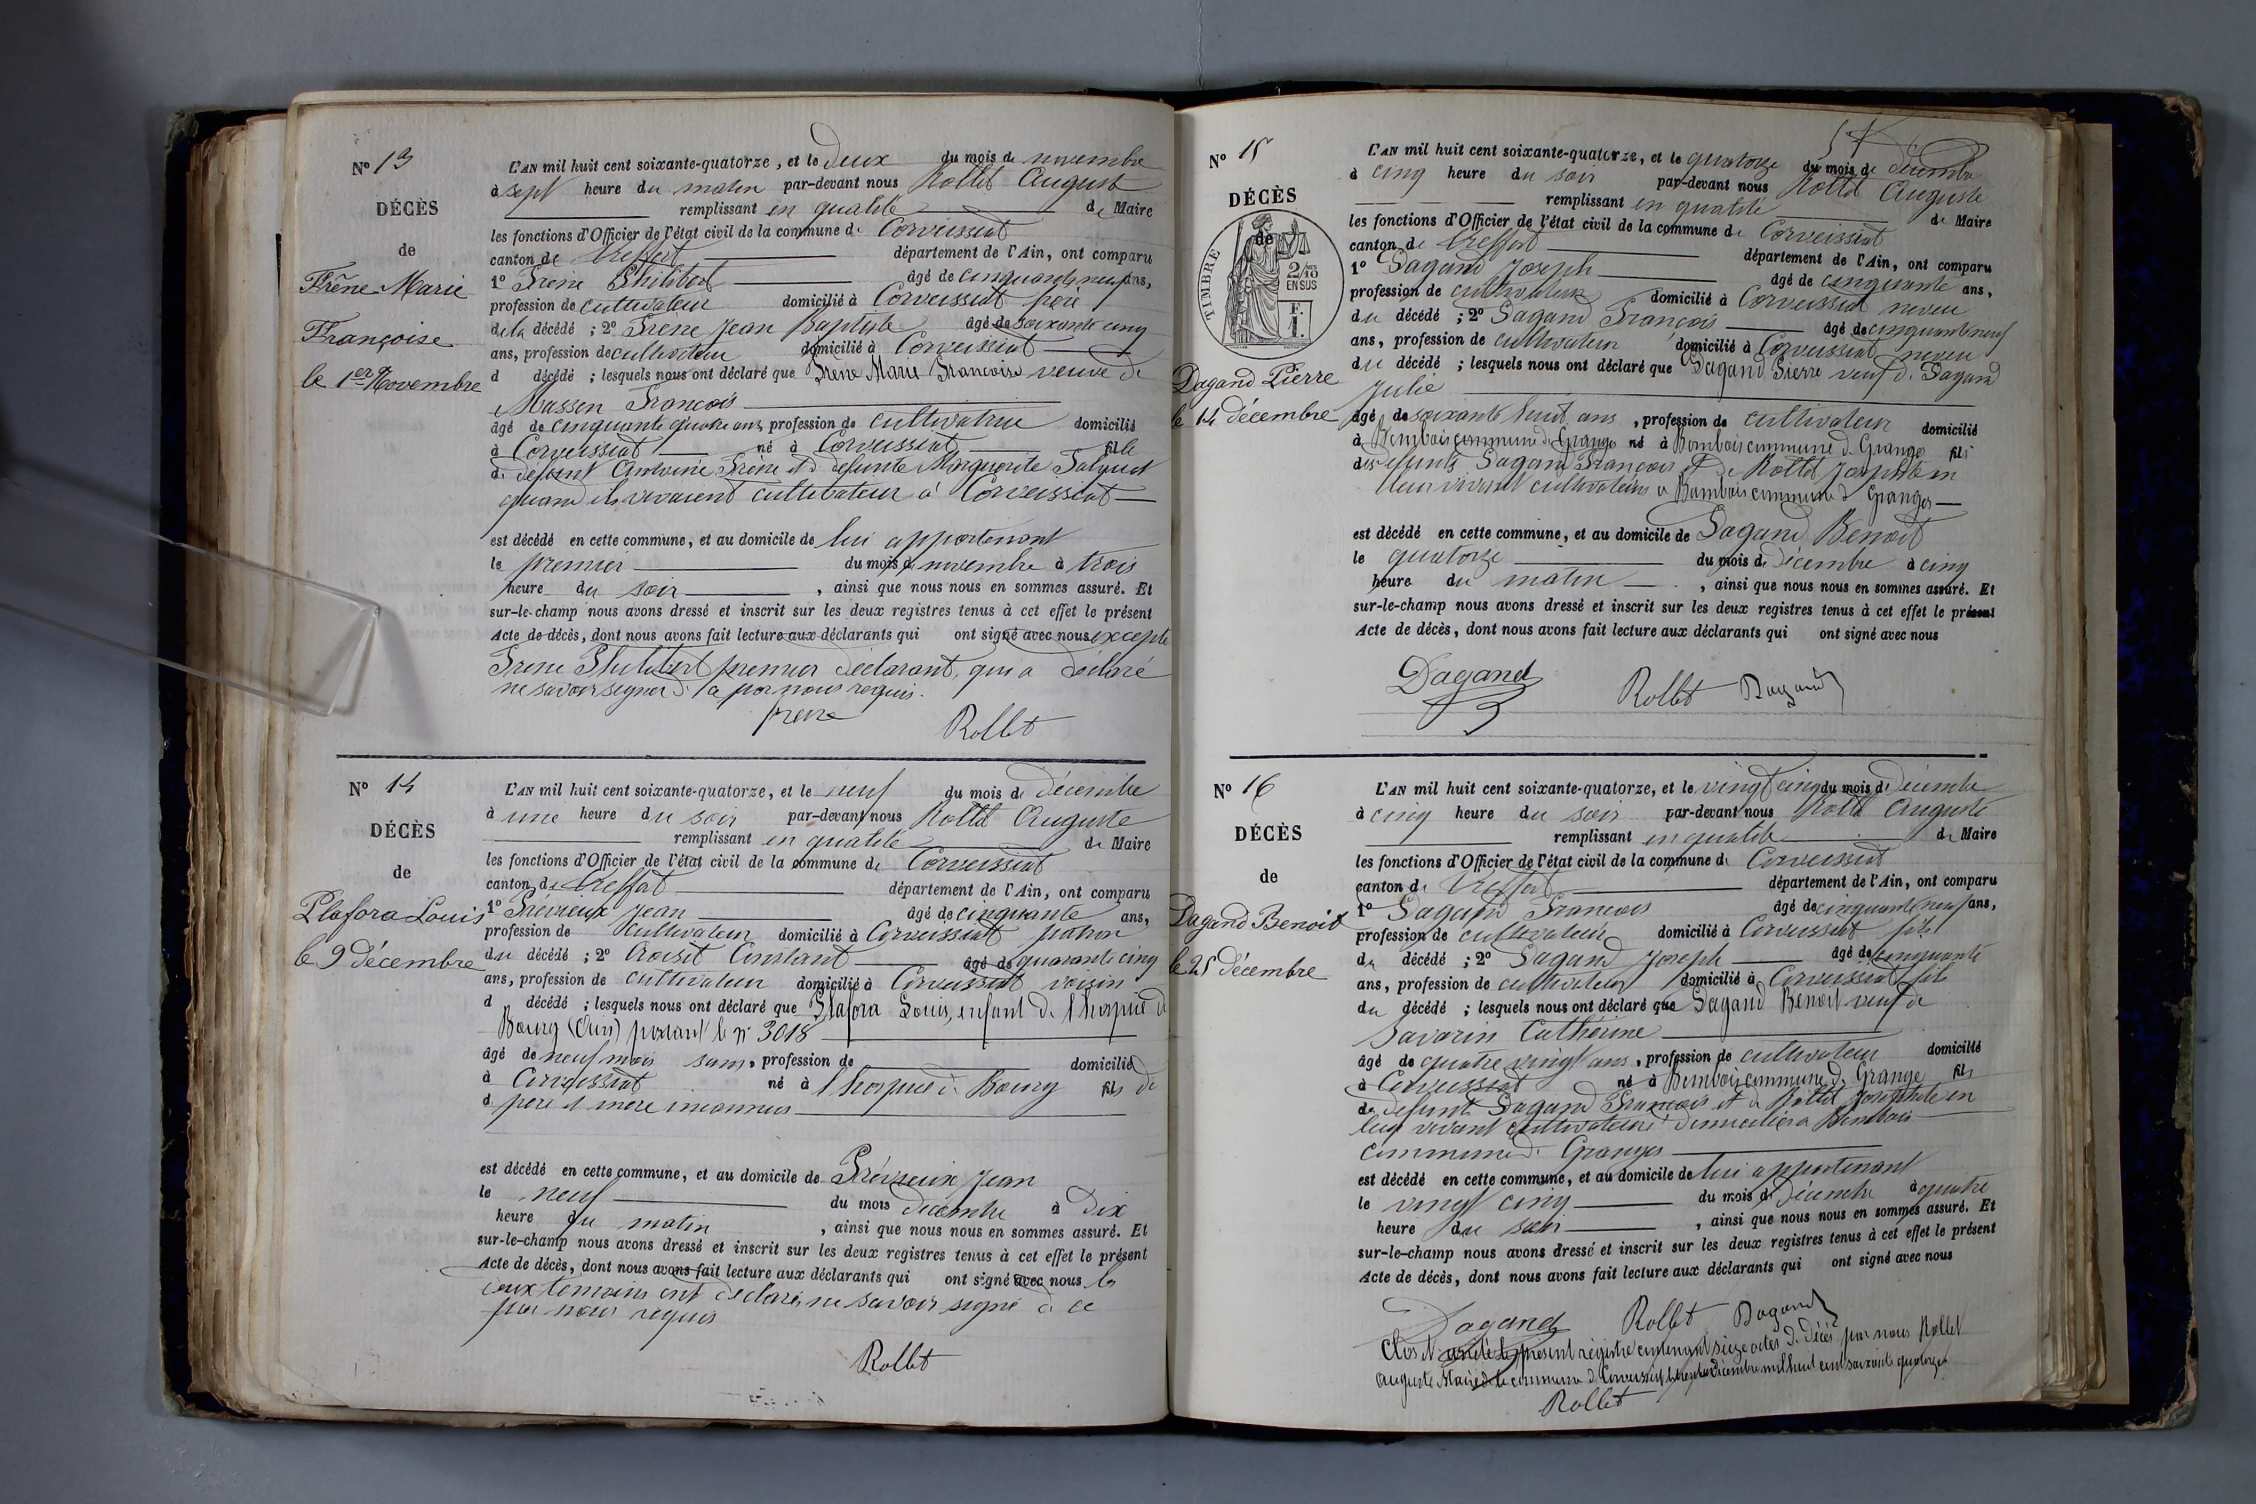 No 13
DÉCÈS
de
Frêne Marie
Françoise
le 1er Novembre
L'AN mil huit cent soixante-quatorze, et le deux du mois de novembre
à sept heure du matin par-devant nous Rollet August
remplissant en qualité de Maire
les fonctions d'Officier de l'état civil de la commune de Corveissiat
canton de Treffort département de l'Ain, ont comparu
1° Frene Philibert âgé de cinquante neuf ans,
profession de cultivateur domicilié à Corveissiat
de la décédé ; 2° Frene Jean Baptiste âgé de soixante cinq
ans, profession de cultivateur domicilié à Corveissiat
d décédé ; lesquels nous ont déclaré que Frene Marie Francoise veuve de
Masson François
âgé de cinquante quatre ans, profession de cultivatrice domicilié
à Corveissiat né à Corveissiat fille
de defunt Antoine Frêne et d defunte Marguerite
quand ils vivaient cultivateur à Corveissiat
est décédé en cette commune, et au domicile de lui appartenant
le premier du mois de novembre à trois
heure du soir , ainsi que nous nous en sommes assuré. Et
sur-le-champ nous avons dressé et inscrit sur les deux registres tenus à cet effet le présent
Acte de décès, dont nous avons fait lecture aux déclarants qui ont signé avec nous excepte
Frene Philibert premier déclarant, qui a déclaré
ne savoir signer d par nous requis.
frene
Rollet
No 14
DÉCÈS
de
Plafora Louis
le 9 décembre
L'AN mil huit cent soixante-quatorze, et le neuf du mois de décembre
à une heure du soir par-devant nous Rollet Auguste
remplissant en qualité de Maire
les fonctions d'Officier de l'état civil de la commune de Corveissiat
canton de Treffort département de l'Ain, ont comparu
1° Prévieux Jean âgé de cinquante ans,
profession de cultivateur domicilié à Corveissiat patron
du décédé ; 2° Croisit Constant âgé de quarante cinq
ans, profession de cultivateur domicilié à Corveissiat voisin
d décédé ; lesquels nous ont déclaré que Plafora Louis, enfant de l'hospice d
Bourg (Ain) portant le n° 3018
âgé de neuf mois sans, profession de domicilié
à Corveissiat né à l'hospice de Bourg fils de
d pere et mere inconnus
est décédé en cette commune, et au domicile de Prévieux Jean
le neuf du mois décembre à dix
heure du matin , ainsi que nous nous en sommes assuré. Et
sur-le-champ nous avons dressé et inscrit sur les deux registres tenus à cet effet le présent
Acte de décès, dont nous avons fait lecture aux déclarants qui ont signé avec nous les
deux temoins ont declarés ne savoir signé d ce
par nous requis
Rollet
No 15
DÉCÈS
de
TIMBRE
2/10
EN SUS
F.
1.
Dagand Pierre
le 14 décembre
L'AN mil huit cent soixante-quatorze, et le quatorze du mois de décembre
à cinq heure du soir par-devant nous Rollet Auguste
remplissant en qualité de Maire
les fonctions d'Officier de l'état civil de la commune de Corveissiat
canton de Treffort département de l'Ain, ont comparu
1° Dagand Joseph âgé de cinquante ans,
profession de cultivateur domicilié à Corveissiat neveu
du décédé ; 2° Dagand François âgé de cinquante neuf
ans, profession de cultivateur domicilié à Corveissiat neveu
du décédé ; lesquels nous ont déclaré que Dagand Pierre veuf de Dagand
Julie
âgé de soixante huit ans , profession de cultivateur domicilié
à Bombois commune de Grange né à Bombois commune de Granges fils
des defunts Dagand François et de Rollet Josephte en
leur vivant cultivateurs a Bombois commune d Granges
est décédé en cette commune, et au domicile de Dagand Benoit
le quatorze du mois de décembre à cinq
heure du matin , ainsi que nous nous en sommes assuré. Et
sur-le-champ nous avons dressé et inscrit sur les deux registres tenus à cet effet le présent
Acte de décès, dont nous avons fait lecture aux déclarants qui ont signé avec nous
Dagand Rollet Dagand
No 16
DÉCÈS
de
Dagand Benoit
le 25 décembre
L'AN mil huit cent soixante-quatorze, et le vingt cinq du mois de décembre
à cinq heure du soir par-devant nous Rollet Auguste
remplissant en qualité de Maire
les fonctions d'Officier de l'état civil de la commune de Corveissiat
canton de Treffort département de l'Ain, ont comparu
1° Dagand Francois âgé de cinquante neuf ans,
profession de cultivateur domicilié à Corveissiat fils
du décédé ; 2° Dagand Joseph âgé de cinquante
ans, profession de cultivateur domicilié à Corveissiat fils
du décédé ; lesquels nous ont déclaré que Dagand Benoit veuf de
Savarin Cathérine
âgé de quatre vingt ans , profession de cultivateur domicilié
à Corveissiat né à Bombois commune de Grange fils
de defunt Dagand François et de Rollet Josephte en
leur vivant cultivateurs domicilié a Bombois
commune de Granges
est décédé en cette commune, et au domicile de lui appartenant
le vingt cinq du mois de décembre à quatre
heure du soir , ainsi que nous nous en sommes assuré. Et
sur-le-champ nous avons dressé et inscrit sur les deux registres tenus à cet effet le présent
Acte de décès, dont nous avons fait lecture aux déclarants qui ont signé avec nous
Dagand Rollet Dagand
Clos et arrêté le present régistre contenant seize actes de décès par nous Rollet
Auguste Maire de la commune d Corveissiat le décembre mil huit cent soixante quatorze
Rollet